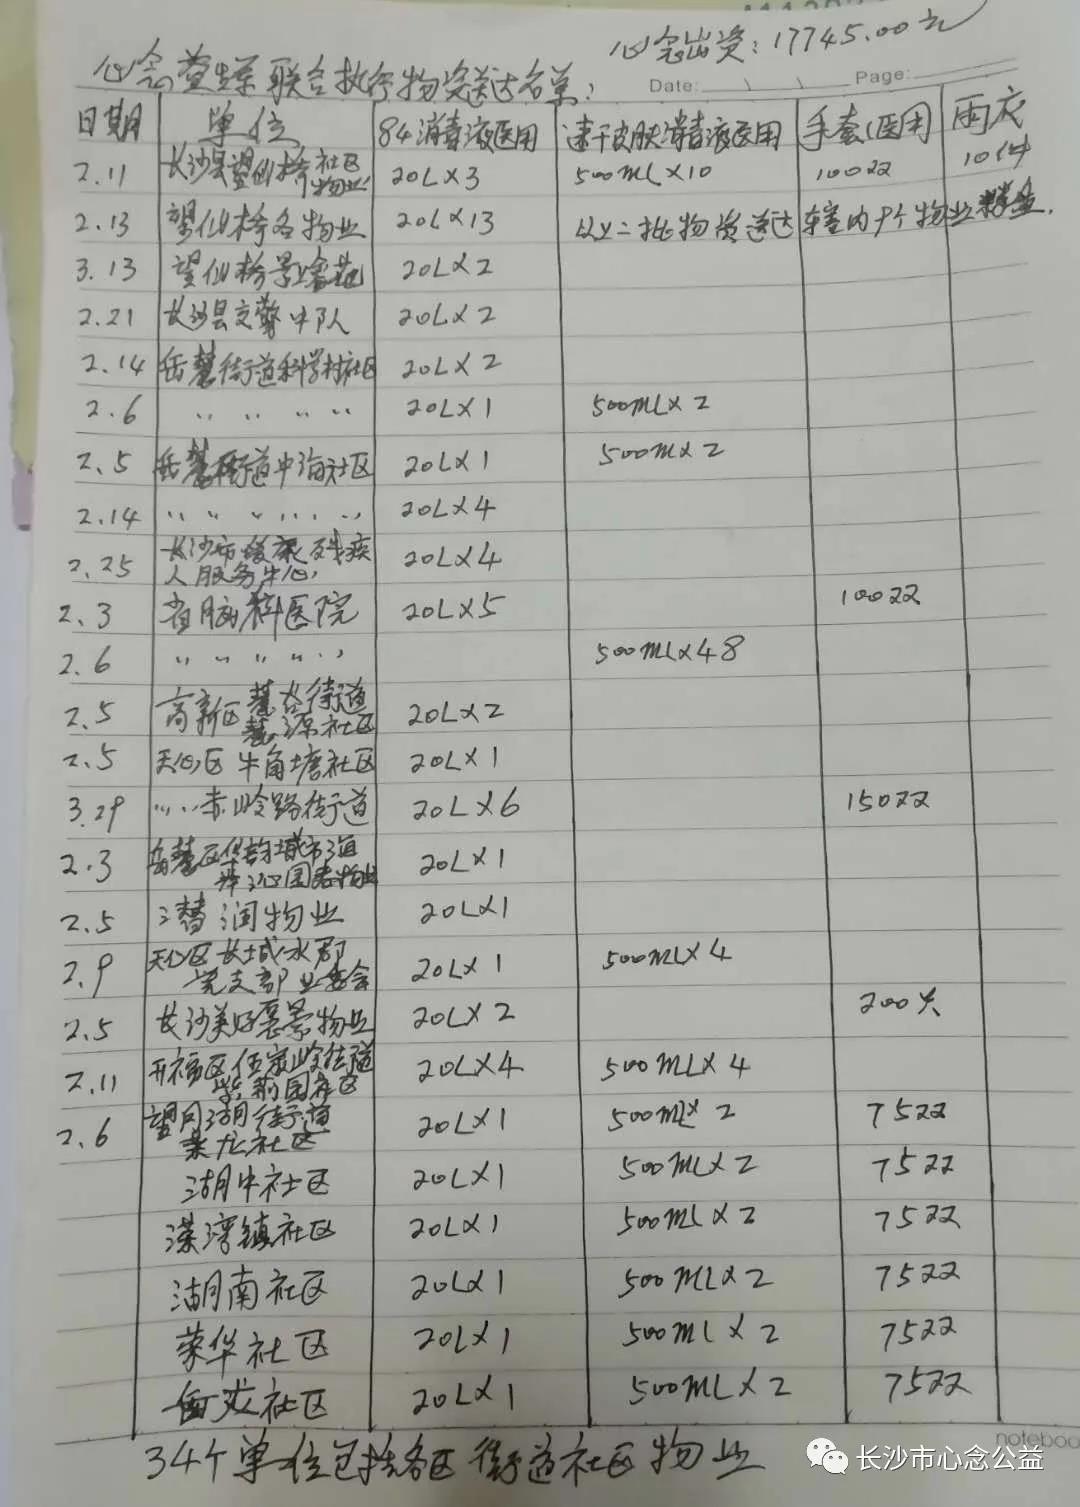 心念出资:17745.00元
Date: Page:
心念 联合执行物资送达名单:
日期 单位 84消毒液医用 速干皮肤消毒液医用 手套(医用) 雨衣
2.11 长沙县望仙桥社区物业 20L×3 500ML×10 100双 10件
2.13 望仙桥各物业 20L×13 以上二批物资送达辖内9个物业
3.13 望仙桥 20L×2
2.21 长沙县交警中队 20L×2
2.14 岳麓街道科学村社区 20L×2
2.6 〃 〃 〃 〃 20L×1 500ML×2
2.5 岳麓街道中海社区 20L×1 500M×2
2.14 〃 〃 〃 〃 〃 20L×4
2.25 长沙市 残疾
人服务中心 20L×4
2.3 省脑科医院 20L×5 100双
2.6 〃 〃 〃 〃 〃 500ML×48
2.5 高新区麓谷街道
麓源社区 20L×2
2.5 天心区牛角塘社区 20L×1
3.29 〃 〃 赤岭路街道 20L×6 150双
2.3 岳麓区华韵城市
物业 20L×1
2.5 润物业 20L×1
2.9 天心区长城水郡
党支部业委会 20L×1 500ML×4
2.5 长沙美好 景物业 20L×2 200只
2.11 开福区伍家岭街道
紫荆园社区 20L×4 500ML×4
2.6 望月湖街道
荣龙社区 20L×1 500ML×2 75双
湖中社区 20L×1 500ML×2 75双
溁湾镇社区 20L×1 500ML×2 75双
湖南社区 20L×1 500ML×2 75双
荣华社区 20L×1 500ML×2 75双
社区 20L×1 500ML×2 75双
34个单位包括各区街道社区物业
notebook
长沙市心念公益